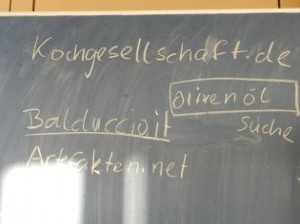 Kochgesellschaft.de
olivenöl
Suche
Balduccio.it
Artefakten.net